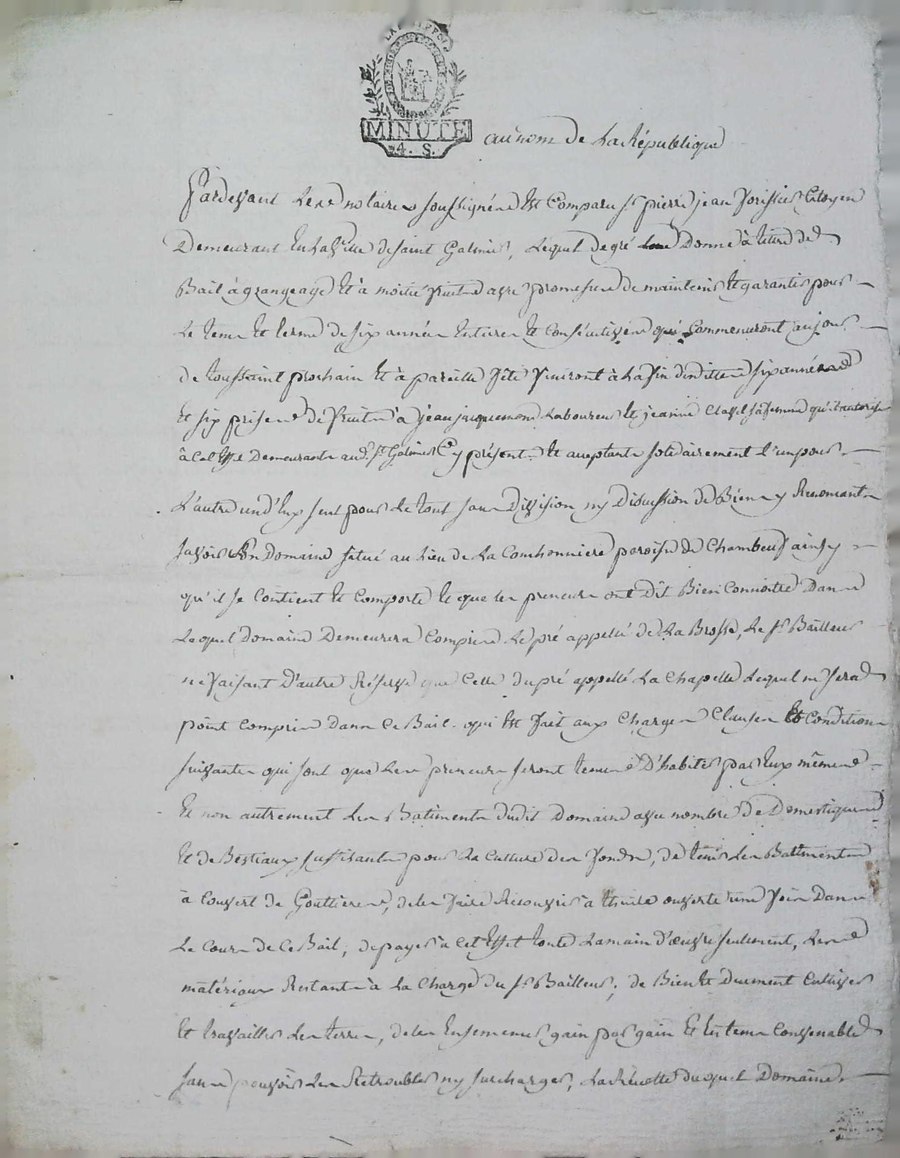 LA RÉP. FRA.
MINUTE
4. S.
au nom de La République
Pardevant Les notaires soussignés Est Comparu sr pierre jean Forissier Citoyen
Demeurant En La Ville de saint Galmier, Lequel de gré Donne à titre de
Bail à grangeage Et à moitié fruits avec promesse de maintenir Et garantir pour
Le tems Et terme de six années Entieres Et Consécutives qui Commenceront au jour
de toussaint prochain Et à pareille fête finiront à La fin desdittes six années
Et six prises de fruits à jean jacquemond Laboureur Et jeanne Clavel sa femme qu'il autorise
à Cet Effet Demeurants aud. st Galmier Cy présents Et acceptants solidairement L'un pour
L'autre un d'Eux seul pour Le tout sans Division ny Discussion de Biens y Renonçants
savoir un Domaine situé au Lieu de La Combonniere paroisse de Chambeuf ainsy
qu'il se Contient Et Comporte Et que les preneurs ont dit Bien Connoitre Dans
Lequel Domaine Demeurera Compris Le pré appellé de La Brosse, Le sr Bailleur
ne faisant D'autre Réserve que Celle du pré appellé La Chapelle Lequel ne sera
point Compris Dans Ce Bail. qui Est fait aux Charges Clauses Et Conditions
suivantes qui sont que Les preneurs seront tenus D'habiter par Eux mêmes
Et non autrement Les Batiments dudit Domaine avec nombre de Domestiques
Et de Bestiaux suffisants pour La Culture des fonds, de tenir Les Batiments
à Couvert de Gouttieres, de les faire Recouvrir à thuile ouverte une fois Dans
Le Cours de Ce Bail, de payer à Cet Effet toute La main d'œuvre seulement, Les
matériaux Restants à La Charge du sr Bailleur, de Bien Et Duement Cultiver
Et travailler Les terres, de les Ensemencer gain par gain Et En tems Convenable
sans pouvoir Les Retroubler ny surcharger, La Récolte duquel Domaine